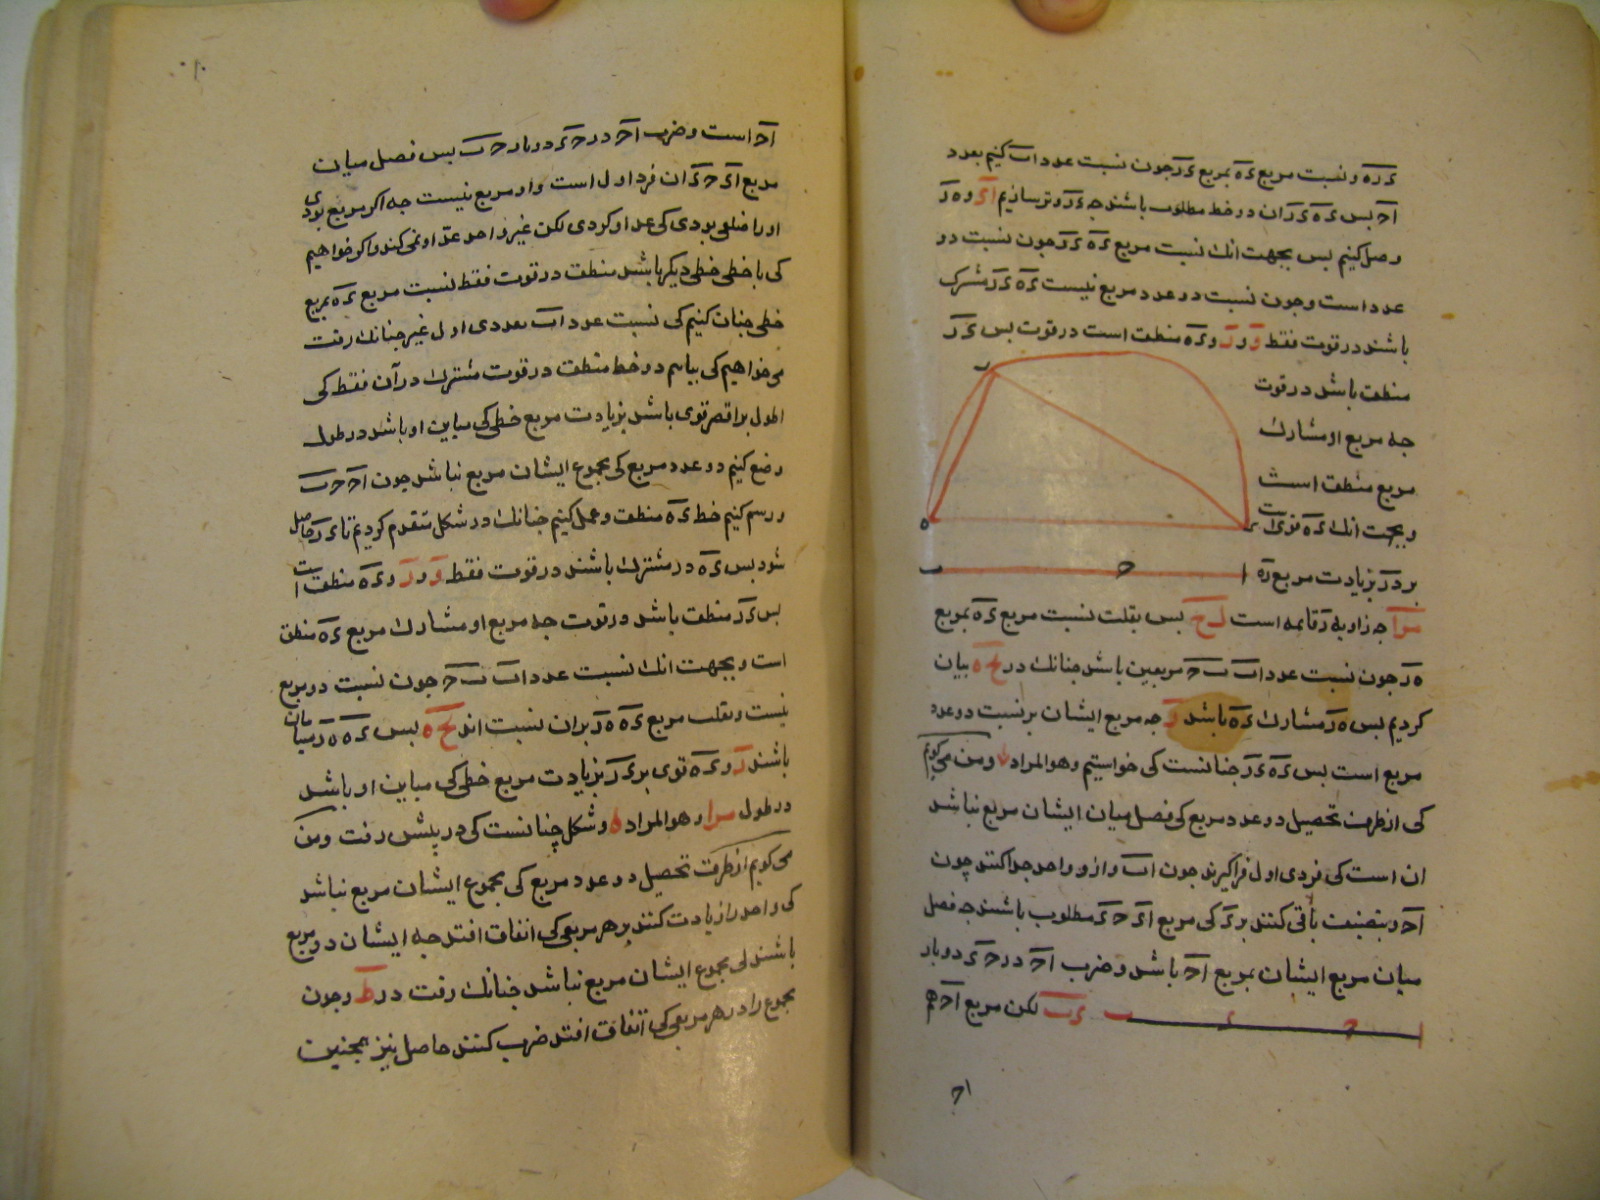 ءره و نسبت مربع ءه بمربع ءر چون نسبت عدد اب کنیم بعدد
اح بس ءه ءر ان دو خط مطلوب باشند جه ءر وتر سازیم اء و ه ر
وصل کنیم بس بجهت انك نسبت مربع ءه ءر چون نسبت دو
عدد است وجون نسبت دو عدد مربع نیست ءه ءر مشترک
باشند در قوت فقط و ر و ءه منطق است در قوت بس ءر
منطق باشد در قوت
جه مربع او مشارك
مربع منطق است
و بجهت انك ءه قوی است
بر ءر بزیادت مربع ره
جه زاویه ر قائمه است لح بس بقلب نسبت مربع ءه بمربع
ه ر جون نسبت عدد اب ب ح مربعین باشد جنانك در ح ه بیان
کردیم بس ه ر مشارك ءه باشد ر جه مربع ایشان بر نسبت دو عدد
مربع است بس ءه ءر جنانست کی خواستیم وهو المراد ومن می کویم
کی از طرف تحصیل دو عدد مربع کی فصل میان ایشان مربع نباشد
ان است کی فردی اول فرا کیرند جون اب و ازو واحد جدا کنند چون
اح و بتنصیف باقی کنند بر ء کی مربع اء ح ء مطلوب باشند جه فصل
میان مربع ایشان بمربع اح باشد و ضرب اح در ح ء دو بار
ء ب لکن مربع اح هم
اح
ه ر
ا ح ب
ا ح ء ب
اح است و ضرب اح در ح ء دو بار ح ب بس فصل میان
مربع اء ح ء ان فرد اول است واو مربع نیست جه اکر مربع بودی
او را ضلعی بودی کی عد او کردی لکن غیر واحد عد او نمی کند و اکر خواهیم
کی با خطی خطی دیکر باشد منطق در قوت فقط نسبت مربع ءه بمربع
خطی جنان کنیم کی نسبت عدد اب بعددی اول غیر جنانك رفت
می خواهیم کی بیابیم دو خط منطق در قوت مشترك در آن فقط کی
اطول بر اقصر قوی باشد بزیادت مربع خطی کی مباین او باشد در طول
وضع کنیم دو عدد مربع کی مجموع ایشان مربع نباشد جون اح ح ب
و رسم کنیم خط ءه منطق و عمل کنیم جنانك در شکل متقدم کردیم تا ءر حاصل
شود بس ءه ءر مشترك باشند در قوت فقط و ر و ءه منطق است
بس ءر منطق باشد در قوت جه مربع او مشارك مربع ءه منطق
است و بجهت انك نسبت عدد اب ب ح جون نسبت دو مربع
نیست و بقلب مربع ءه ه ر بران نسبت اند ح ه بس ءه ه ر متباینان
باشند ر و ءه قوی بر ءر بزیادت مربع خطی کی مباین او باشد
در طول وهو المراد و شکل چنانست کی در پیش رفت ومن
می کویم از طرف تحصیل دو عدد مربع کی مجموع ایشان مربع نباشد
کی واحد را زیادت کنند بر هر مربعی کی اتفاق افتد جه ایشان دو مربع
باشند کی مجموع ایشان مربع نباشد جنانك رفت در ط وجون
مجموع را در هر مربعی کی اتفاق افتد ضرب کنند حاصل نیز همجنین